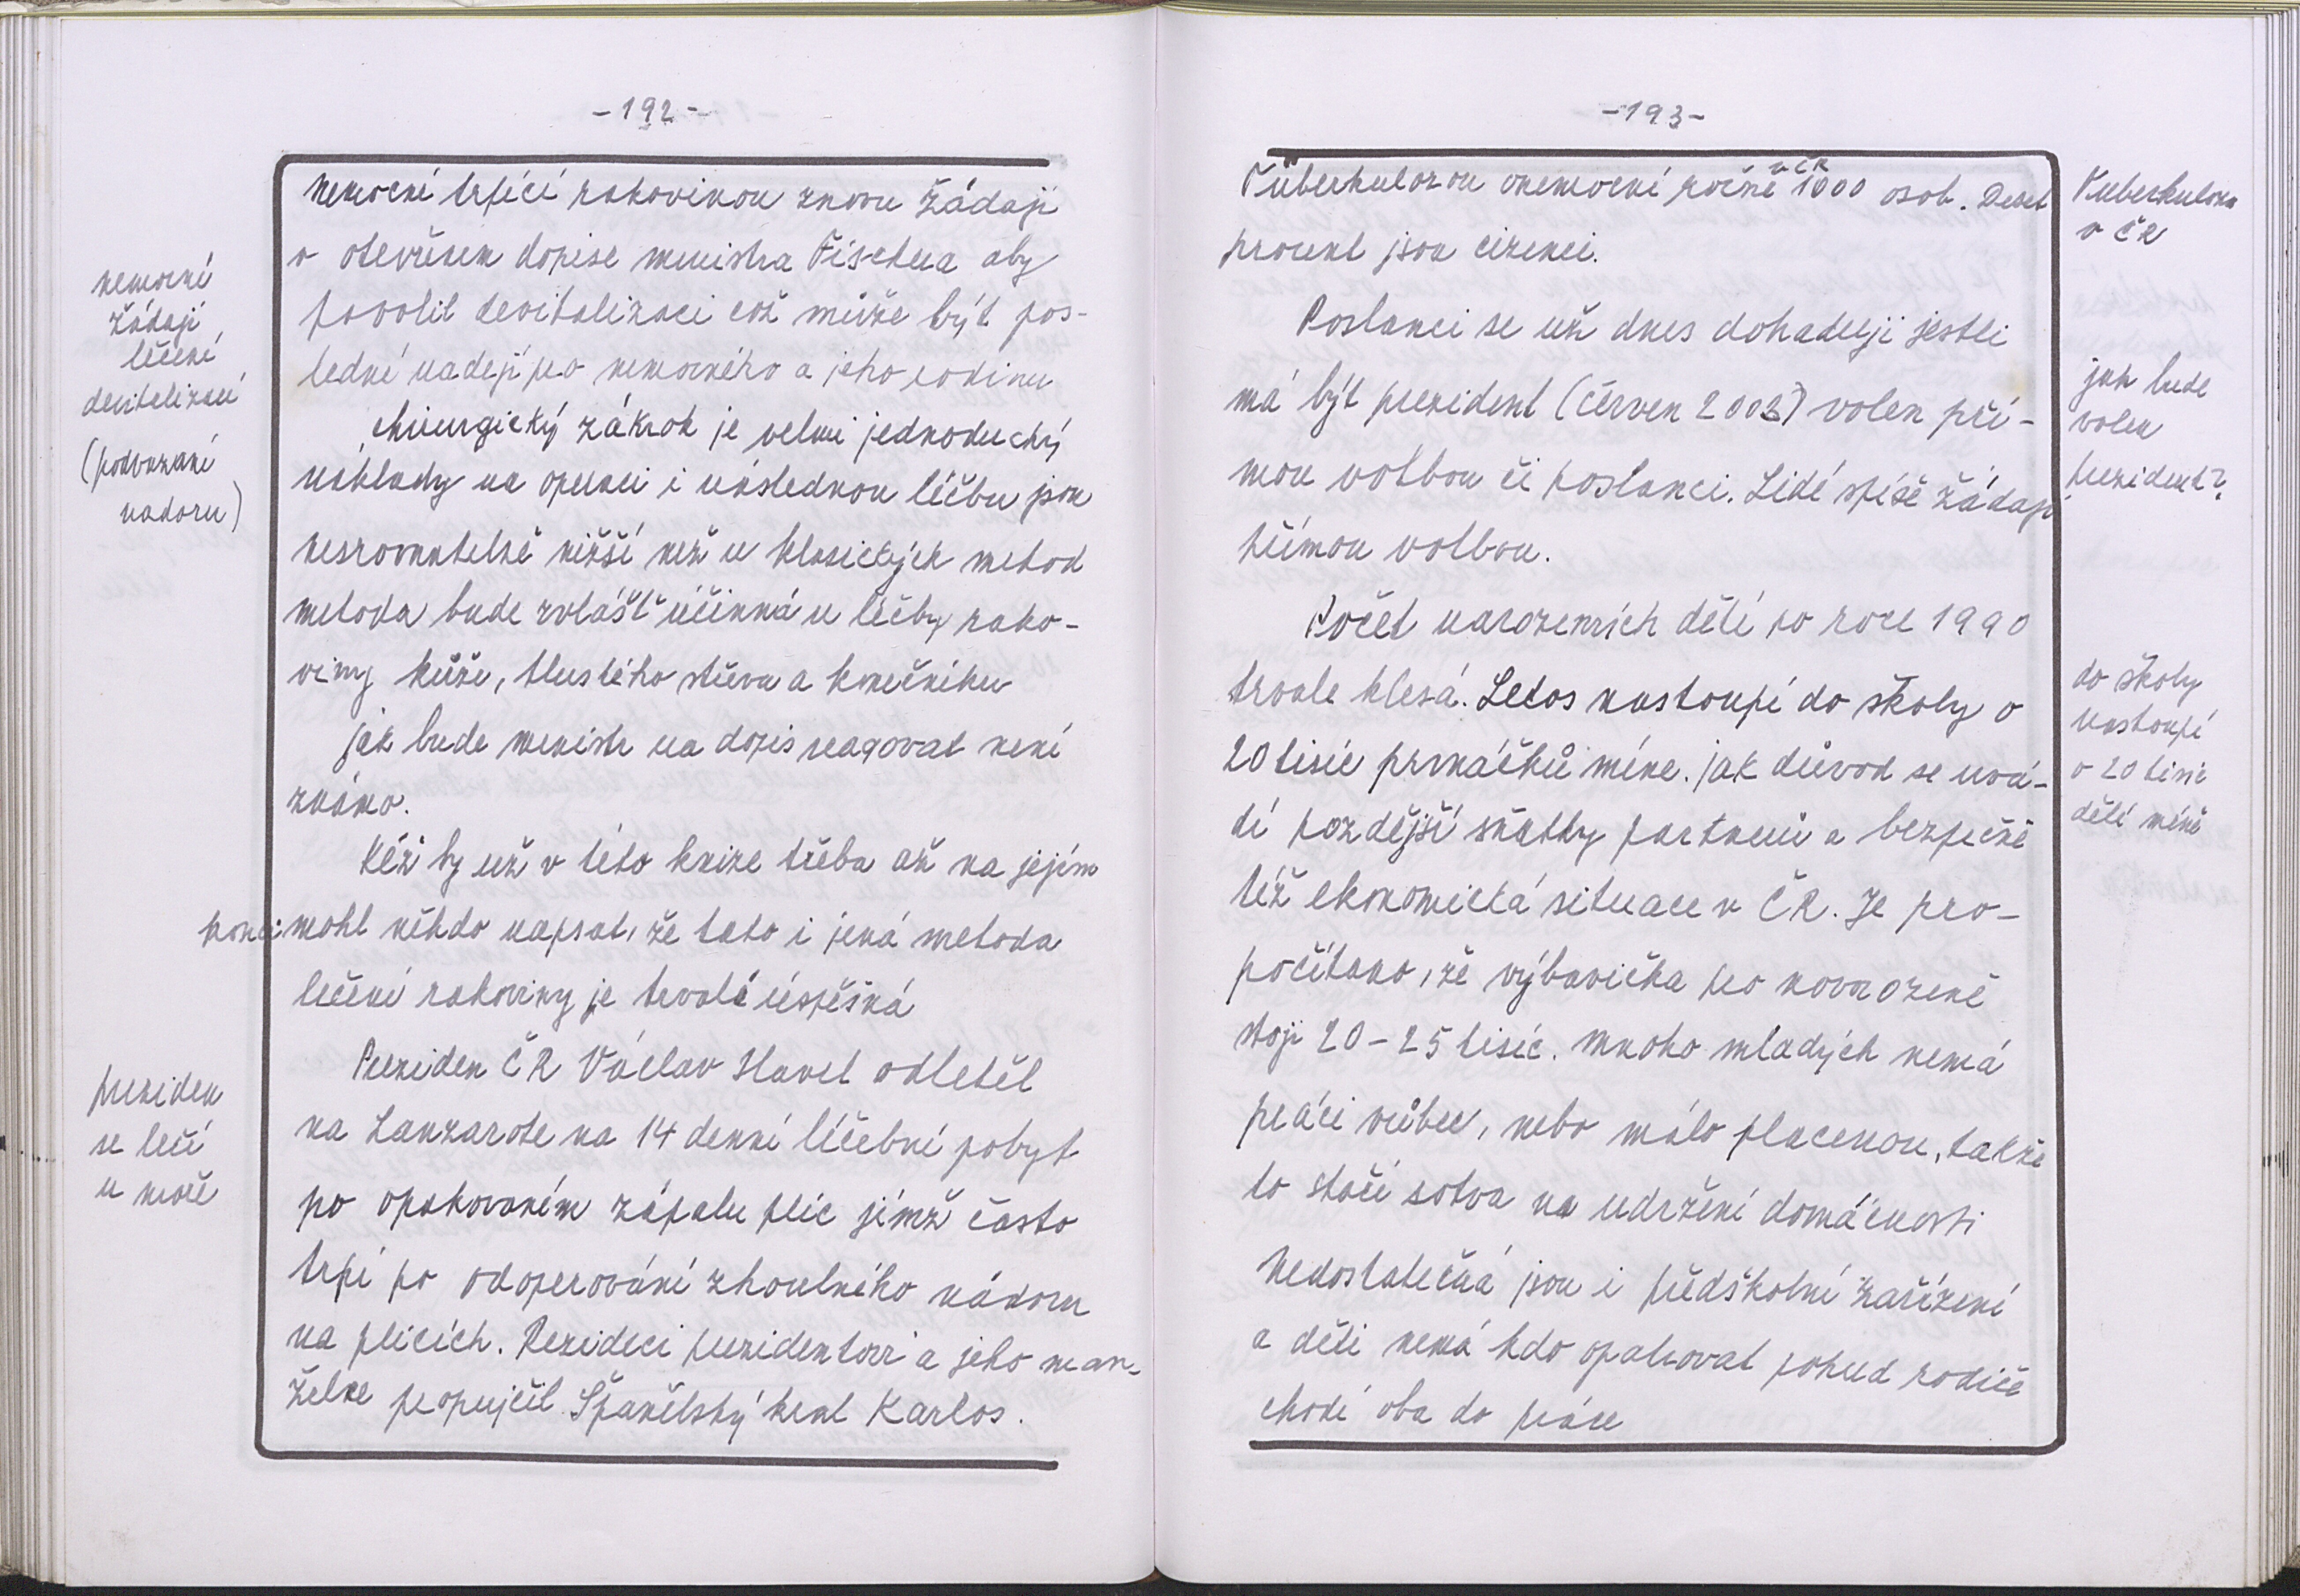 -192-
nemocní
žádají
léčení
devitalizací
(podvázání
nadoru)
Nemocní trpící rakovinou znovu žádají
v otevřenem dopise ministra Fischera aby
povolil devitalizaci což může být pos-
lední nadějí pro nemocného a jeho rodinu
chirurgický zákrok je velmi jednoduchý
náklady na operaci i následnou léčbu jsou
nesrovnatelně nižší než u klasických metod
metoda bude zvlášť účinná u léčby rako-
viny kůže, tlustého střeva a konečníku
jak bude ministr na dopis reagovat není
známo.
Kéž by už v této knize třeba až na jejím
konci mohl někdo napsat, že tato i jiná metoda
léčení rakoviny je trvale úspěšná
preziden
se lečí
u moře
Preziden ČR Václav Havel odletěl
na Lanzarote na 14 denní léčební pobyt
po opakovaném zápalu plic jímž často
trpí po odoperování zhoubného nádoru
na plicích. Rezideci prezidentovi a jeho man-
želce propujčil Španělský kral Karlos.
-193-
Tuberkulozou onemocní ročně v ČR 1000 osob. Deset
procent jsou cizenci.
Tuberkuloza
v ČR
Poslanci se už dnes dohadují jestli
má být prezident (červen 2003) volen pří-
mou volbou či poslanci. Lidé spíše žádají
přímou volbou.
jak bude
volen
prezident?
Počet narozenrích dětí po roce 1990
trvale klesá. Letos nastoupí do školy o
20 tisíc prvnáčků méne. jak důvod se uvá-
dí pozdější sňatky partnerů a bezpečně
též ekonomická situace v ČR. Je pro-
počítano, že výbavička pro novorozeně
stoji 20-25 tisíc. mnoho mladých nemá
práci vůbec, nebo málo placenou, takže
to stačí sotva na udržení domácnosti
Nedostatečná jsou i předškolní zařízení
a děti nemá kdo opatrovat pokud rodiče
chodí oba do práce
do školy
nastoupí
o 20 tisíc
dětí méně